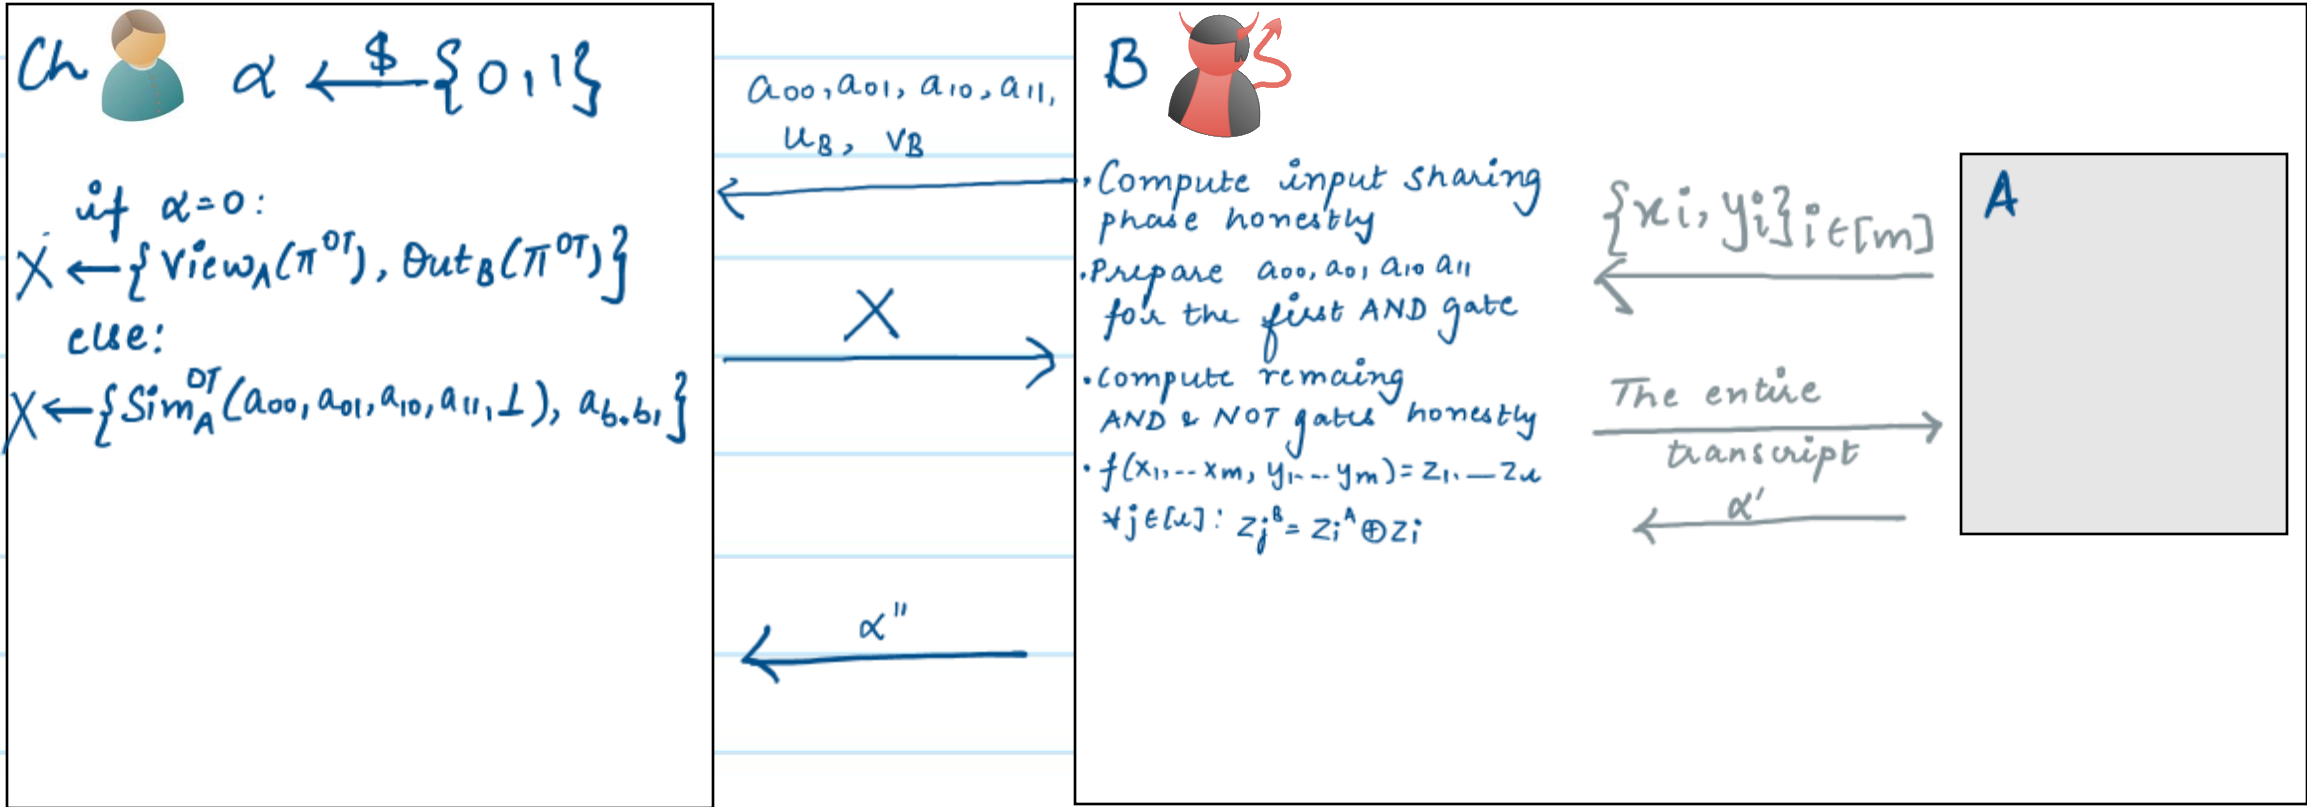 Ch α ←$ {0,1}
if α=0:
X ← { View_A(π^OT), Out_B(π^OT) }
else:
X ← { Sim_A^OT (a00, a01, a10, a11, ⊥), a_b0b1 }
a00, a01, a10, a11,
u_B, v_B
X
α''
B
• Compute input sharing
phase honestly
• Prepare a00, a01 a10 a11
for the first AND gate
• Compute remaing
AND & NOT gates honestly
• f(x1,--xm, y1--ym) = z1.—zu
∀j∈[u]: z_j^B = z_i^A ⊕ z_i
{xi, yi}i∈[m]
The entire
transcript
α'
A